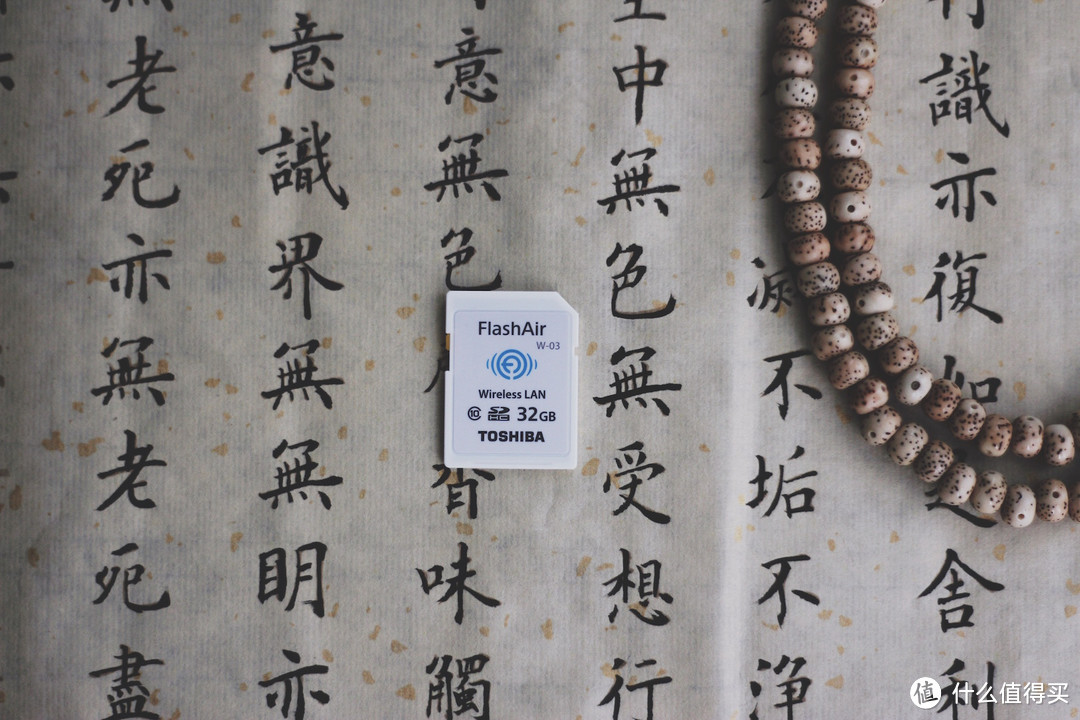 識亦復如舍利
滅不垢不淨
中無色無受想行
意無色香味觸
意識界無無明亦
老死亦無老死盡
FlashAir
W-03
Wireless LAN
10 SDHC 32GB
TOSHIBA
值 什么值得买